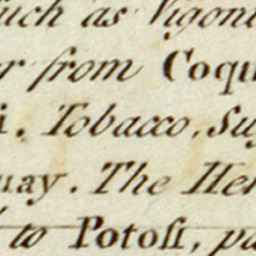 such as Vigoni
r from Coqu
i. Tobacco, Su
uay. The Her
to Potoſi, pa